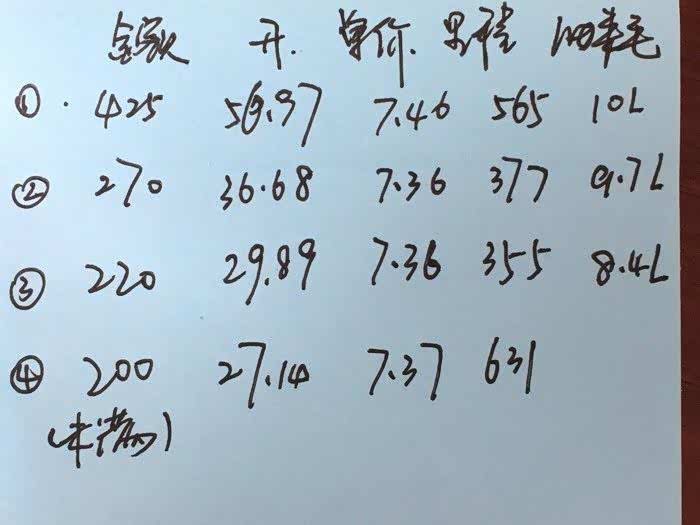 金额 升. 单价. 里程 油耗
① . 425 56.97 7.46 565 10L
② 270 36.68 7.36 377 9.7L
③ 220 29.89 7.36 355 8.4L
④ 200 27.14 7.37 631
(未满)